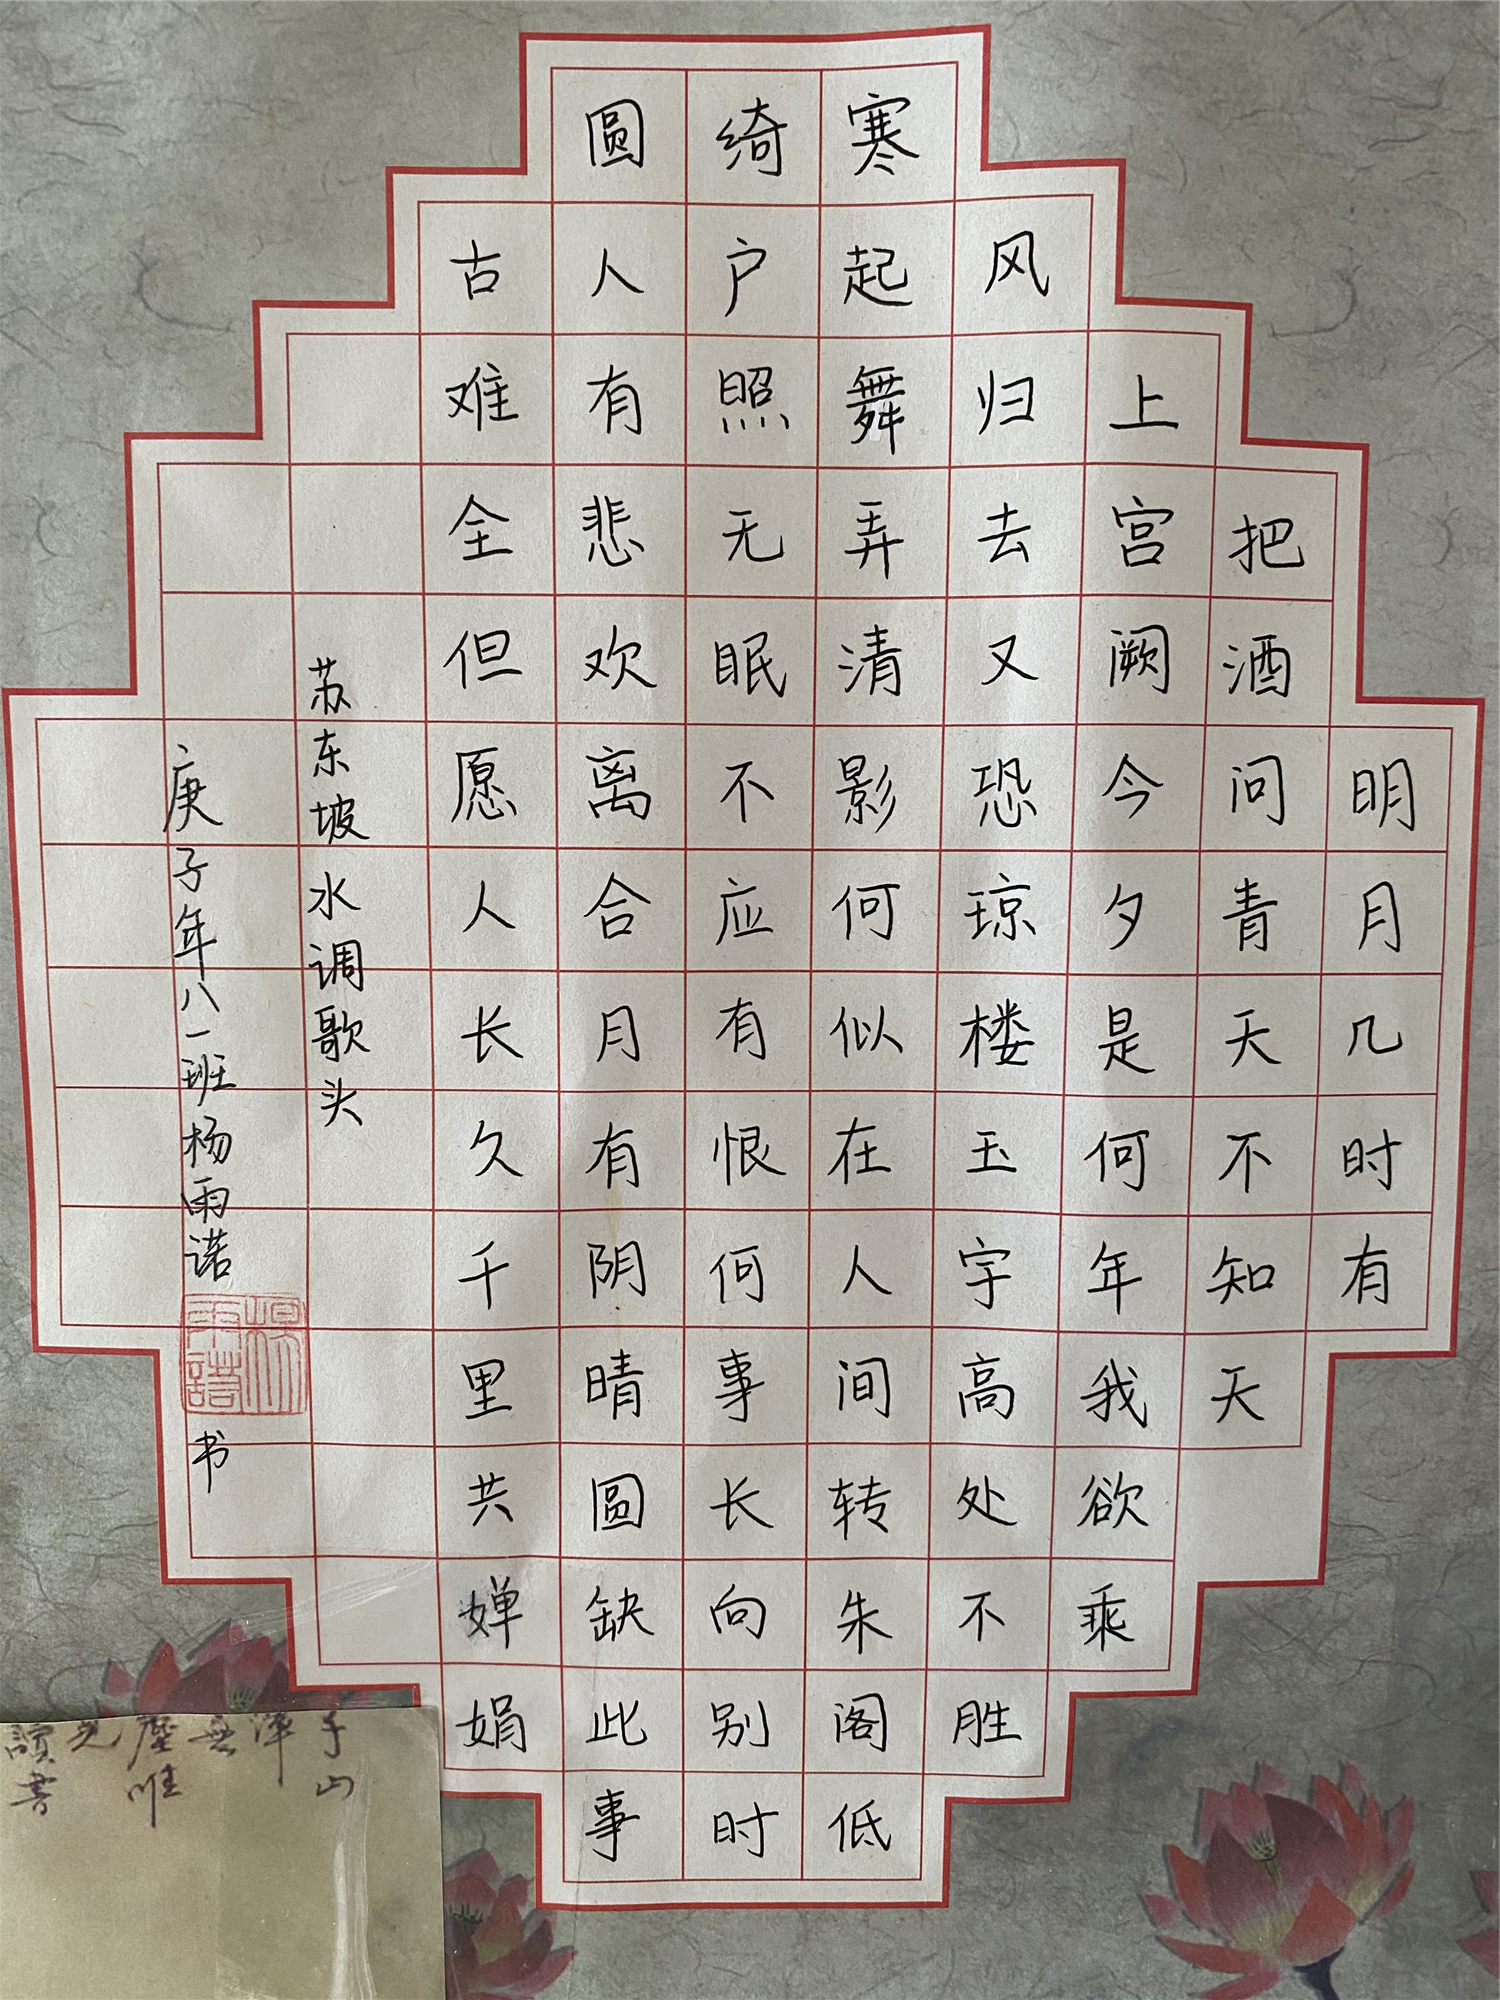 明月几时有
把酒问青天不知天
上宫阙今夕是何年我欲乘
风归去又恐琼楼玉宇高处不胜
寒起舞弄清影何似在人间转朱阁低
绮户照无眠不应有恨何事长向别时
圆人有悲欢离合月有阴晴圆缺此事
古难全但愿人长久千里共婵娟
苏东坡水调歌头
庚子年八一班杨雨诺
楊雨諾
书
山
無
塵唯
讀書